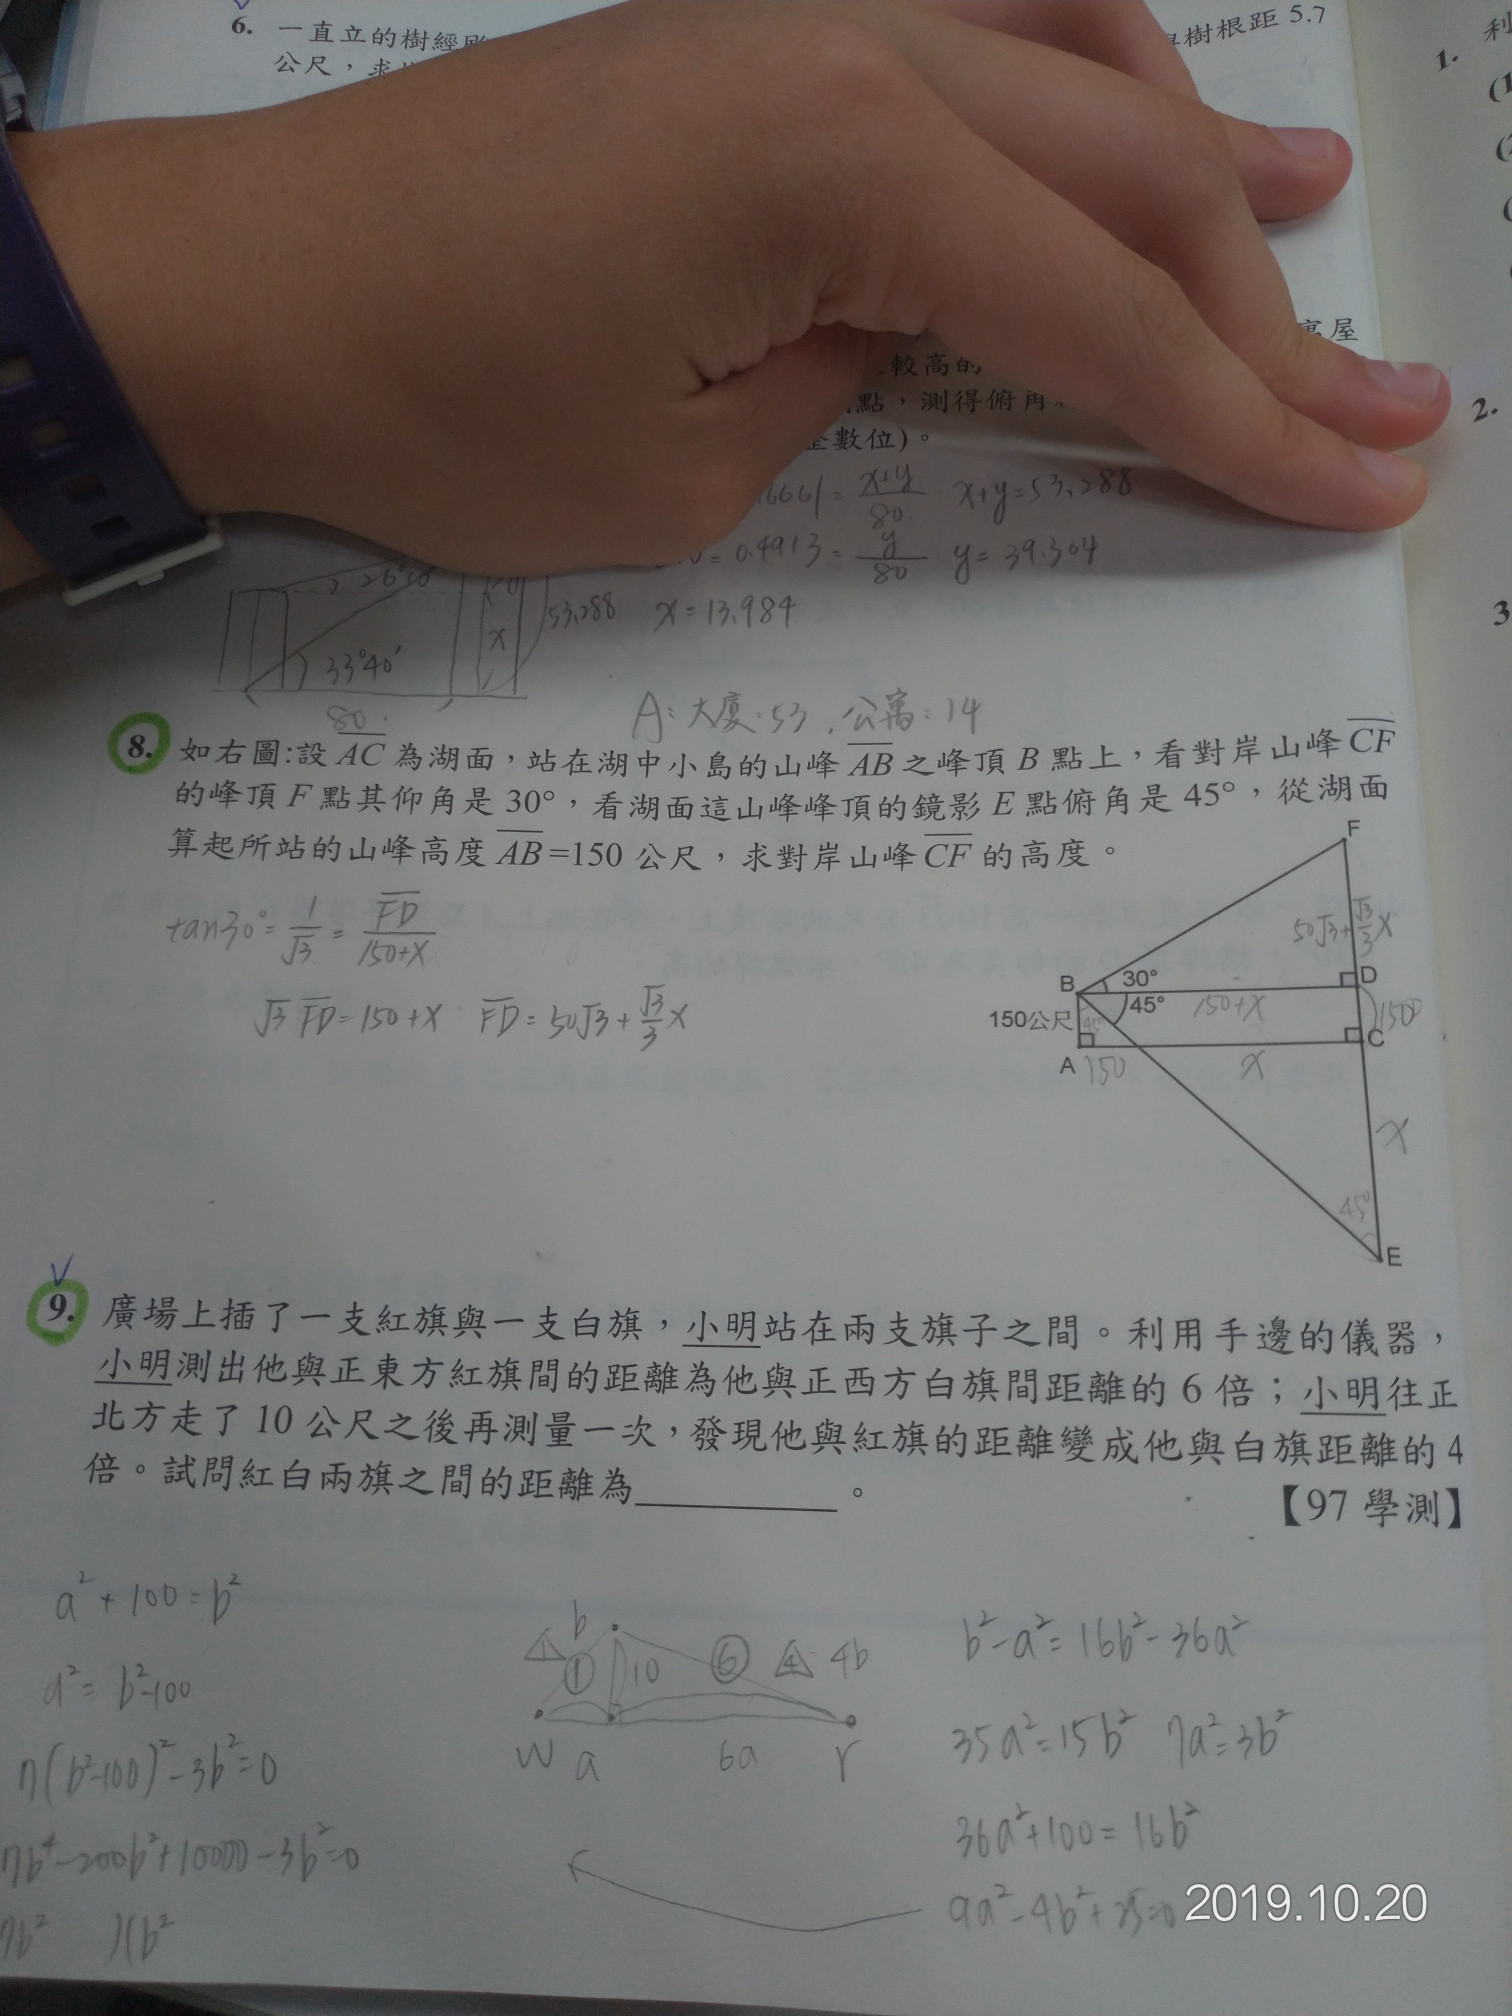 6. 一直立的樹經
樹根距 5.7
公尺，求
屋
較高的
點，測得俯角
整數位)。
6661 = x+y/80 x+y=53.288
= 0.4913 = y/80 y= 39.304
26°10'
53.288 x=13.984
x
33°40'
80
A: 大廈: 53, 公寓: 14
8. 如右圖:設 AC 為湖面，站在湖中小島的山峰 AB 之峰頂 B 點上，看對岸山峰 CF
的峰頂 F 點其仰角是 30°，看湖面這山峰峰頂的鏡影 E 點俯角是 45°，從湖面
算起所站的山峰高度 AB=150 公尺，求對岸山峰 CF 的高度。
F
tan30°= 1/√3 = FD/150+x
50√3+√3/3x
B 30° D
45° 150+x
√3 FD=150+x FD=50√3+√3/3x
150公尺 45° 150
C
A 150 x
x
45°
E
9. 廣場上插了一支紅旗與一支白旗，小明站在兩支旗子之間。利用手邊的儀器，
小明測出他與正東方紅旗間的距離為他與正西方白旗間距離的 6 倍；小明往正
北方走了 10 公尺之後再測量一次，發現他與紅旗的距離變成他與白旗距離的 4
倍。試問紅白兩旗之間的距離為________。
【97 學測】
a²+100=b²
b
1 1 10 6 4 4b
b²-a²=16b²-36a²
a²=b²-100
W a 6a r
35a²=15b² 7a²=3b²
7(b²-100)²-3b²=0
36a²+100=16b²
7b⁴-200b²+10000-3b²=0
9a²-4b²+25=0
7b² b²
2019.10.20
1.
利
(1
2.
3